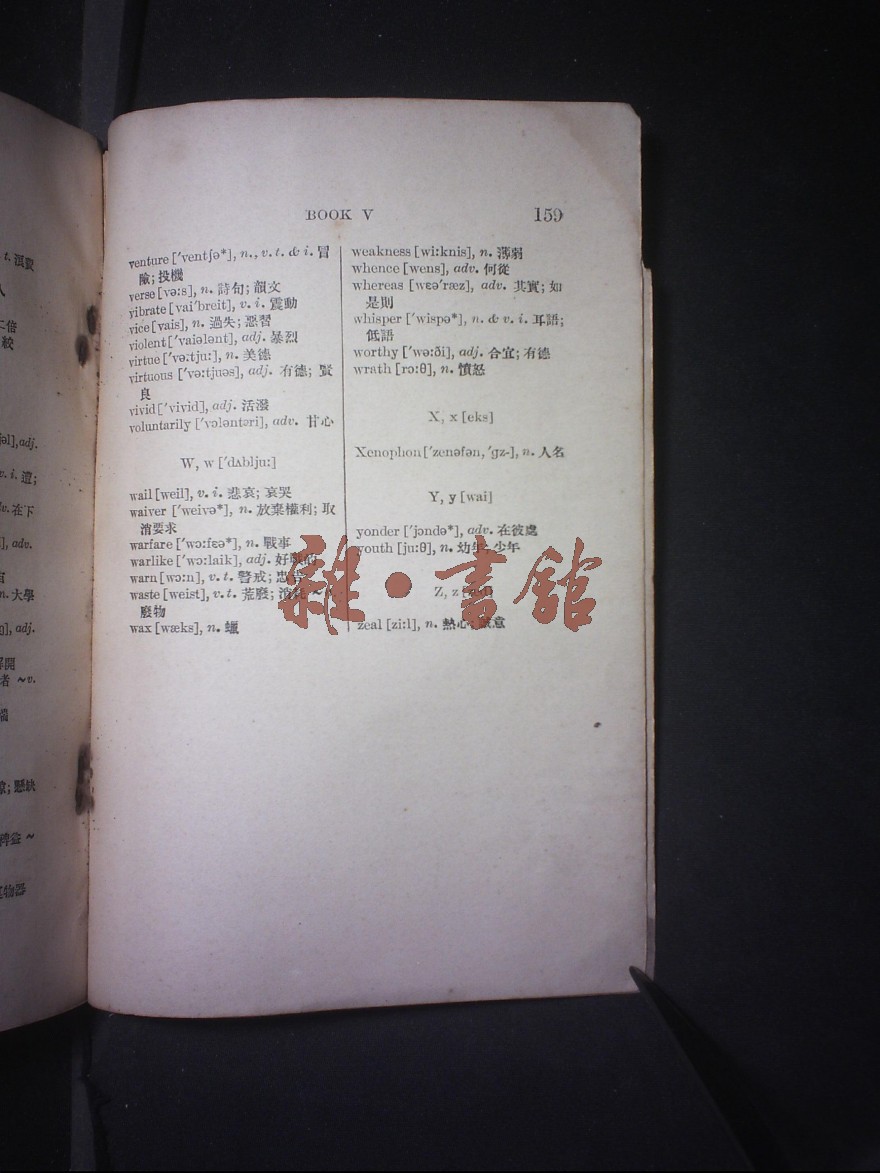 BOOK V
159
venture ['ventʃə*], n., v. t. & i. 冒
險; 投機
verse [və:s], n. 詩句; 韻文
vibrate [vai'breit], v. i. 震動
vice [vais], n. 過失; 惡習
violent ['vaiələnt], adj. 暴烈
virtue ['və:tju:], n. 美德
virtuous ['və:tjuəs], adj. 有德; 賢
良
vivid ['vivid], adj. 活潑
voluntarily ['vɔləntəri], adv. 甘心
W, w ['dʌblju:]
wail [weil], v. i. 悲哀; 哀哭
waiver ['weivə*], n. 放棄權利; 取
消要求
warfare ['wɔ:fɛə*], n. 戰事
warlike ['wɔ:laik], adj. 好戰的
warn [wɔ:n], v. t. 警戒; 忠告
waste [weist], v. t. 荒廢; 消耗
廢物
wax [wæks], n. 蠟
weakness [wi:knis], n. 薄弱
whence [wens], adv. 何從
whereas [wɛə'ræz], adv. 其實; 如
是則
whisper ['wispə*], n. & v. i. 耳語;
低語
worthy ['wə:ði], adj. 合宜; 有德
wrath [rɔ:θ], n. 憤怒
X, x [eks]
Xenophon ['zenəfən, 'gz-], n. 人名
Y, y [wai]
yonder ['jɔndə*], adv. 在彼處
youth [ju:θ], n. 幼年; 少年
Z, z
zeal [zi:l], n. 熱心
雜·書館
t.
二倍
adj.
v. i. 遭;
v. 在下
adv.
n. 大學
adj.
~v.
懸缺